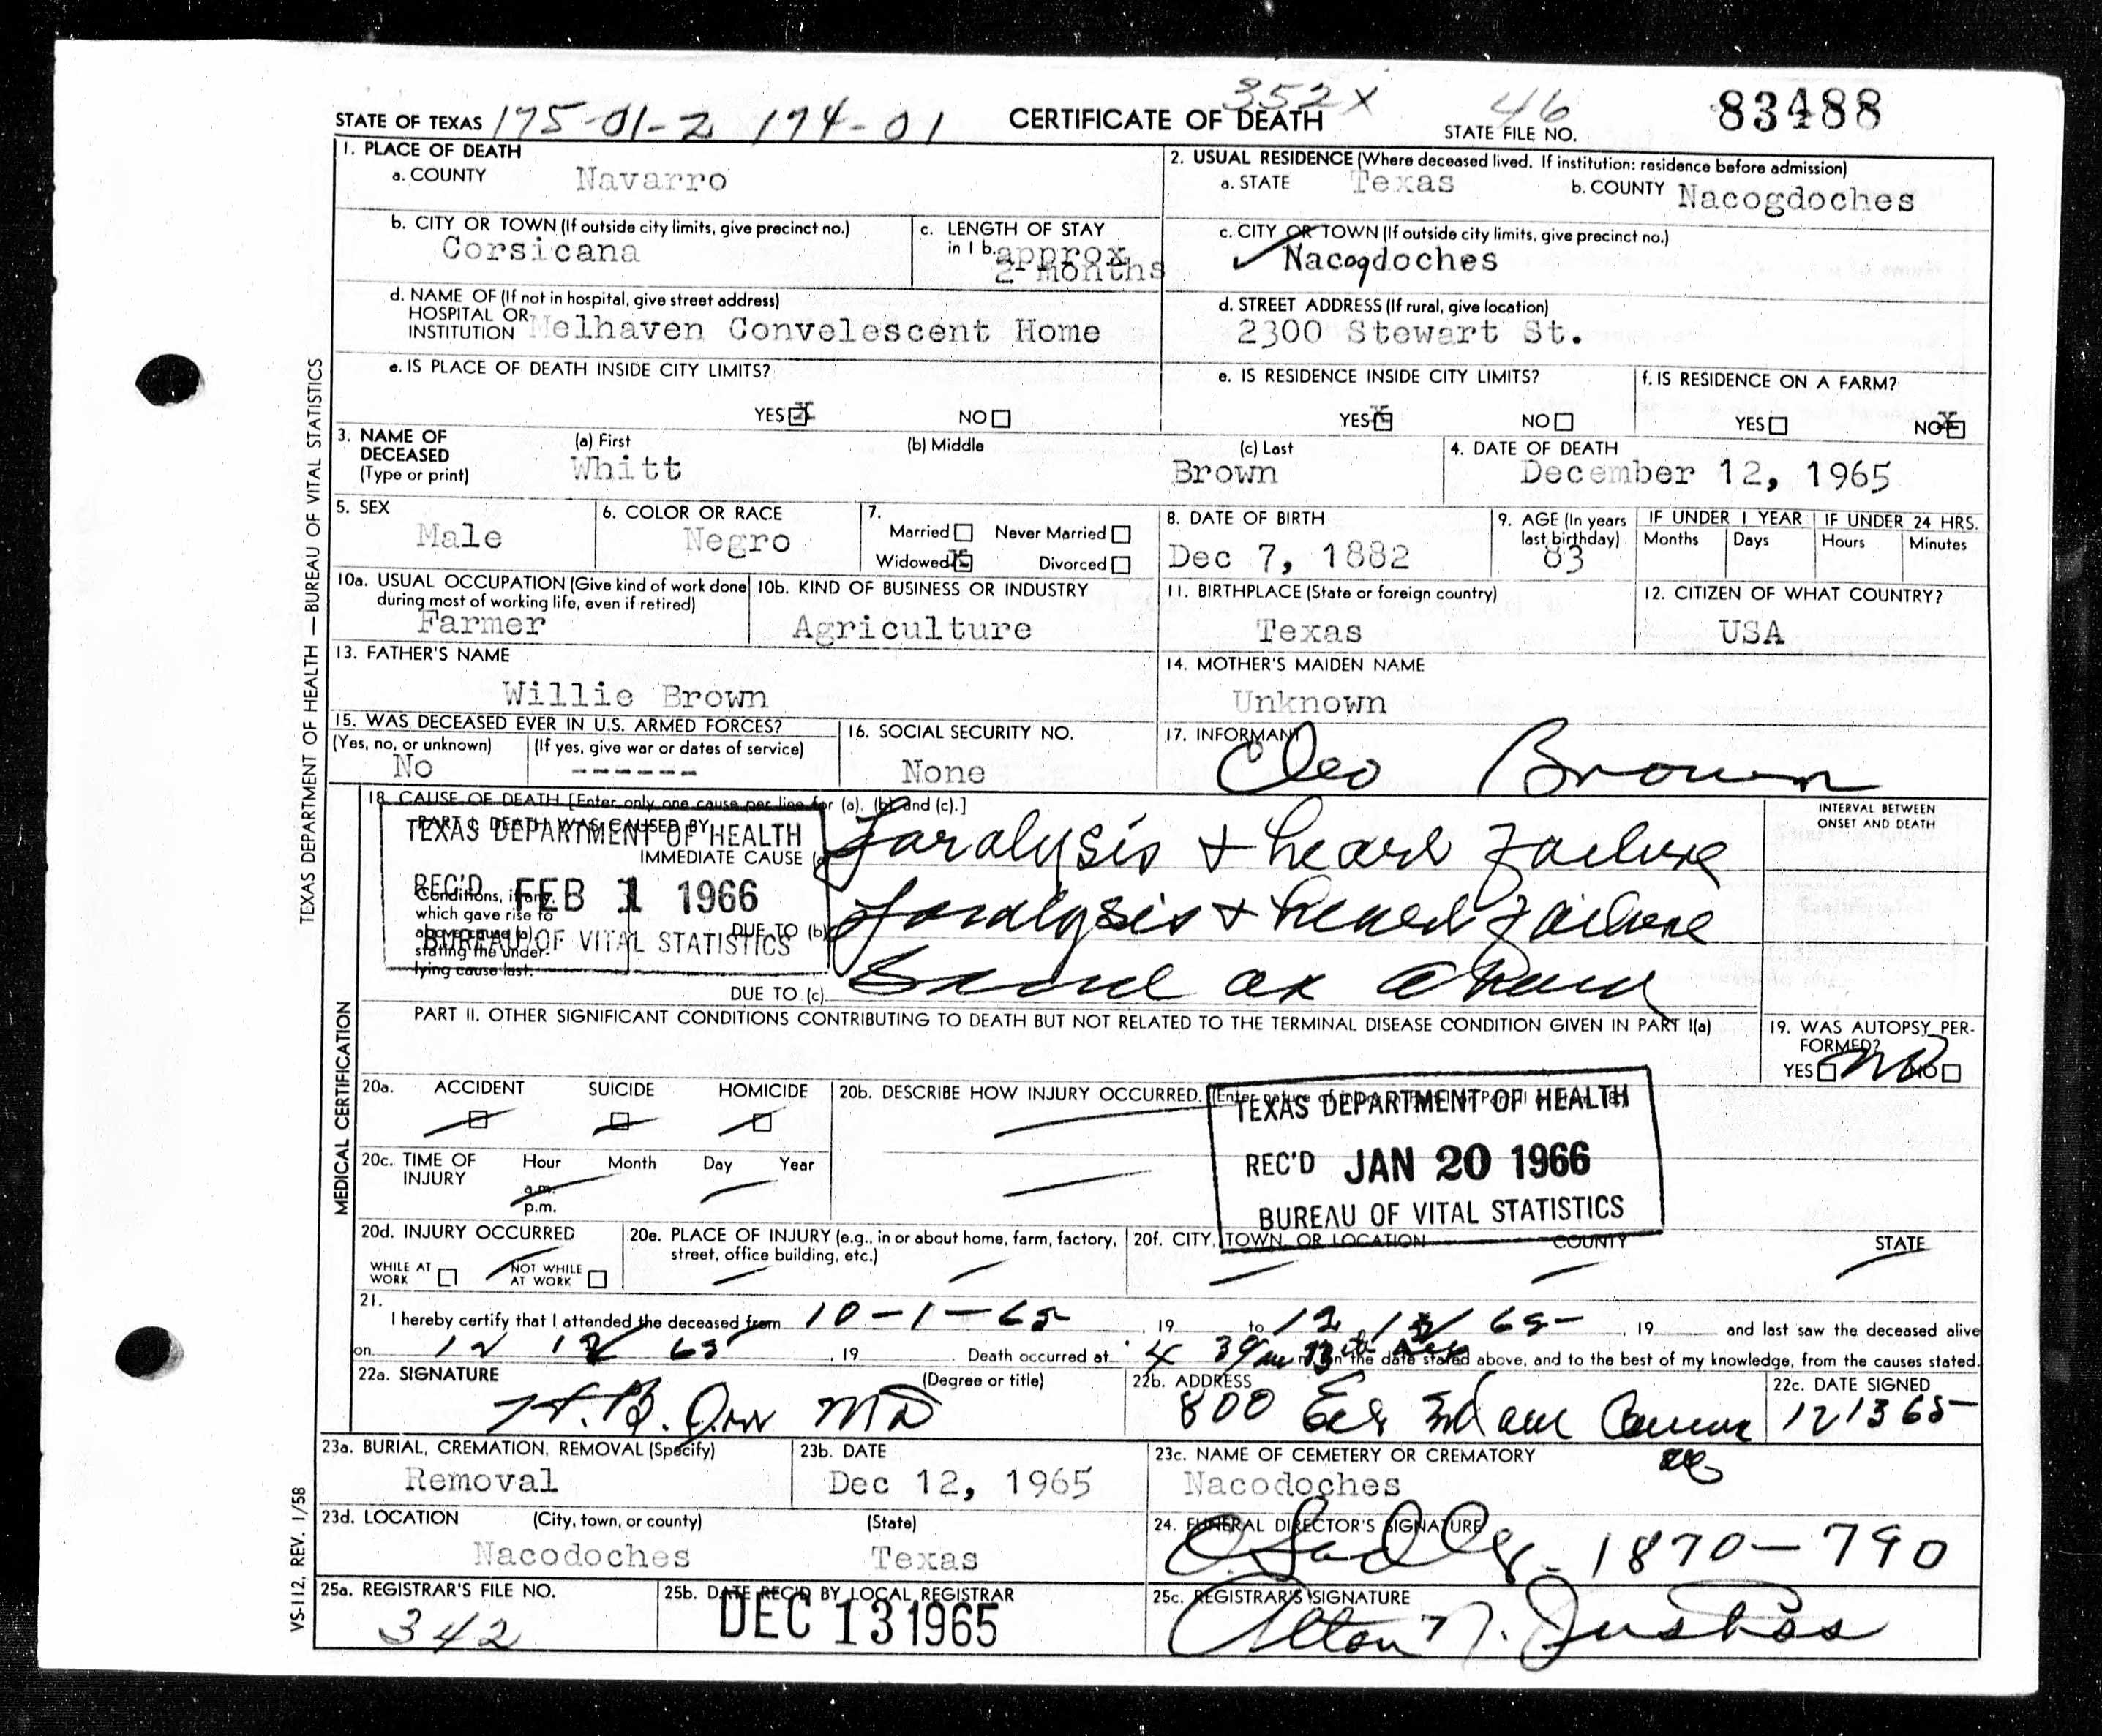 STATE OF TEXAS 175-01-2 174-01 CERTIFICATE OF DEATH 352X 46 STATE FILE NO. 83488
1. PLACE OF DEATH
a. COUNTY Navarro
2. USUAL RESIDENCE (Where deceased lived. If institution: residence before admission)
a. STATE Texas b. COUNTY Nacogdoches
b. CITY OR TOWN (If outside city limits, give precinct no.)
Corsicana
c. LENGTH OF STAY
in 1 b. approx
2 months
c. CITY OR TOWN (If outside city limits, give precinct no.)
Nacogdoches
d. NAME OF (If not in hospital, give street address)
HOSPITAL OR
INSTITUTION Melhaven Convelescent Home
d. STREET ADDRESS (If rural, give location)
2300 Stewart St.
e. IS PLACE OF DEATH INSIDE CITY LIMITS?
YES X NO
e. IS RESIDENCE INSIDE CITY LIMITS?
YES X NO
f. IS RESIDENCE ON A FARM?
YES NO X
3. NAME OF
DECEASED
(Type or print)
(a) First (b) Middle (c) Last
Whitt Brown
4. DATE OF DEATH
December 12, 1965
5. SEX
Male
6. COLOR OR RACE
Negro
7.
Married Never Married
Widowed X Divorced
8. DATE OF BIRTH
Dec 7, 1882
9. AGE (In years
last birthday)
83
IF UNDER 1 YEAR IF UNDER 24 HRS.
Months Days Hours Minutes
10a. USUAL OCCUPATION (Give kind of work done
during most of working life, even if retired)
Farmer
10b. KIND OF BUSINESS OR INDUSTRY
Agriculture
11. BIRTHPLACE (State or foreign country)
Texas
12. CITIZEN OF WHAT COUNTRY?
USA
13. FATHER'S NAME
Willie Brown
14. MOTHER'S MAIDEN NAME
Unknown
15. WAS DECEASED EVER IN U.S. ARMED FORCES?
(Yes, no, or unknown) (If yes, give war or dates of service)
No ------
16. SOCIAL SECURITY NO.
None
17. INFORMANT
Cleo Brown
18. CAUSE OF DEATH [Enter only one cause per line for (a), (b) and (c).]
PART I. DEATH WAS CAUSED BY
IMMEDIATE CAUSE (a) Paralysis + heart failure
INTERVAL BETWEEN
ONSET AND DEATH
TEXAS DEPARTMENT OF HEALTH
REC'D FEB 1 1966
BUREAU OF VITAL STATISTICS
Conditions, if any,
which gave rise to
above cause (a)
stating the under-
lying cause last.
DUE TO (b) Paralysis + heart failure
DUE TO (c)
PART II. OTHER SIGNIFICANT CONDITIONS CONTRIBUTING TO DEATH BUT NOT RELATED TO THE TERMINAL DISEASE CONDITION GIVEN IN PART I(a)
19. WAS AUTOPSY PER-
FORMED?
YES NO no
20a. ACCIDENT SUICIDE HOMICIDE
20b. DESCRIBE HOW INJURY OCCURRED.
TEXAS DEPARTMENT OF HEALTH
REC'D JAN 20 1966
BUREAU OF VITAL STATISTICS
20c. TIME OF
INJURY
Hour Month Day Year
a.m.
p.m.
20d. INJURY OCCURRED
WHILE AT
WORK
NOT WHILE
AT WORK
20e. PLACE OF INJURY (e.g., in or about home, farm, factory,
street, office building, etc.)
20f. CITY, TOWN, OR LOCATION COUNTY STATE
21.
I hereby certify that I attended the deceased from 10-1-65, 19 to 12 12 65, 19 and last saw the deceased alive
on 12 12 65, 19 . Death occurred at 4 39 on the date stated above, and to the best of my knowledge, from the causes stated.
22a. SIGNATURE (Degree or title)
H.B. Orr MD
22b. ADDRESS
800
22c. DATE SIGNED
12 13 65
23a. BURIAL, CREMATION, REMOVAL (Specify)
Removal
23b. DATE
Dec 12, 1965
23c. NAME OF CEMETERY OR CREMATORY
Nacodoches
23d. LOCATION (City, town, or county) (State)
Nacodoches Texas
24. FUNERAL DIRECTOR'S SIGNATURE
1870-790
25a. REGISTRAR'S FILE NO.
342
25b. DATE REC'D BY LOCAL REGISTRAR
DEC 13 1965
25c. REGISTRAR'S SIGNATURE
Alton N. Justiss
TEXAS DEPARTMENT OF HEALTH — BUREAU OF VITAL STATISTICS
MEDICAL CERTIFICATION
VS-112, REV. 1/58